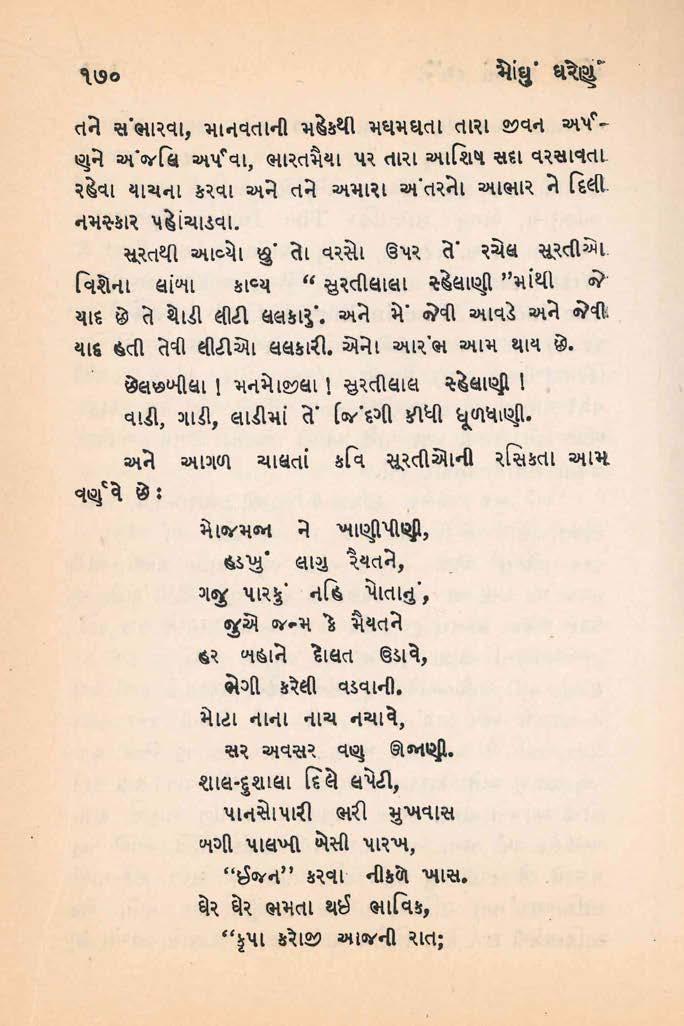 ૧૭૦ મોંઘું ઘરેણું
તને સંભારવા, માનવતાની મહેકથી મઘમઘતા તારા જીવન અર્પ-
ણને અંજલિ અર્પવા, ભારતમૈયા પર તારા આશિષ સદા વરસાવતા
રહેવા યાચના કરવા અને તને અમારા અંતરનો આભાર ને દિલી
નમસ્કાર પહોંચાડવા.
સૂરતથી આવ્યો છું તો વરસો ઉપર તેં રચેલ સૂરતીઓ
વિશેના લાંબા કાવ્ય “ સુરતીલાલા સ્હેલાણી ”માંથી જે
યાદ છે તે થોડી લીટી લલકારું. અને મેં જેવી આવડે અને જેવી
યાદ હતી તેવી લીટીઓ લલકારી. એનો આરંભ આમ થાય છે.
છેલછબીલા ! મનમોજીલા ! સુરતીલાલ સ્હેલાણી !
વાડી, ગાડી, લાડીમાં તેં જિંદગી કીધી ધૂળધાણી.
અને આગળ ચાલતાં કવિ સૂરતીઓની રસિકતા આમ
વર્ણવે છે :
મોજમજા ને ખાણીપીણી,
હડખું લાગુ રૈયતને,
ગજુ પારકું નહિ પોતાનું,
જુએ જન્મ કે મૈયતને
હર બહાને દોલત ઉડાવે,
ભેગી કરેલી વડવાની.
મોટા નાના નાચ નચાવે,
સર અવસર વણુ ઊજાણી.
શાલ-દુશાલા દિલે લપેટી,
પાનસોપારી ભરી મુખવાસ
બગી પાલખી બેસી પારખ,
“ઈજન” કરવા નીકળે ખાસ.
ઘેર ઘેર ભમતા થઈ ભાવિક,
“કૃપા કરોજી આજની રાત;